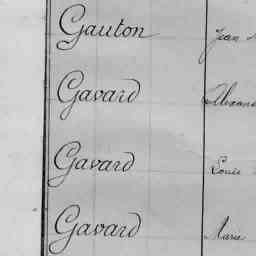 Gauton Jean
Gavard
Gavard Louis
Gavard Marie